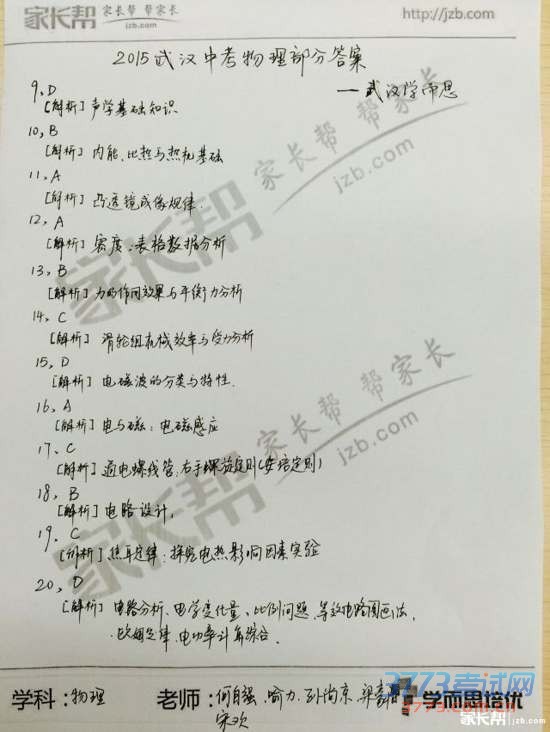 家长帮 家长帮 帮家长
jzb.com
http://jzb.com
2015武汉中考物理部分答案
——武汉学而思
9、D
[解析] 声学基础知识
10、B
[解析] 内能、比热与热机基础
11、A
[解析] 凸透镜成像规律.
12、A
[解析] 密度、表格数据分析
13、B
[解析] 力的作用效果与平衡力分析
14、C
[解析] 滑轮组机械效率与受力分析
15、D
[解析] 电磁波的分类与特性.
16、A
[解析] 电与磁:电磁感应
17、C
[解析] 通电螺线管,右手螺旋定则(安培定则)
18、B
[解析] 电路设计,
19、C
[解析] 焦耳定律:探究电热影响因素实验
20、D
[解析] 电路分析、电学变化量、比例问题、等效电路图画法,
欧姆定律,电功率计算综合.
家长帮 家长帮 帮家长
jzb.com
家长帮 家长帮 帮家长
jzb.com
学科:物理 老师:何自强、喻力、孙尚京、梁 学而思培优
宋欢
3773考试网
3773.com
家长帮 jzb.com